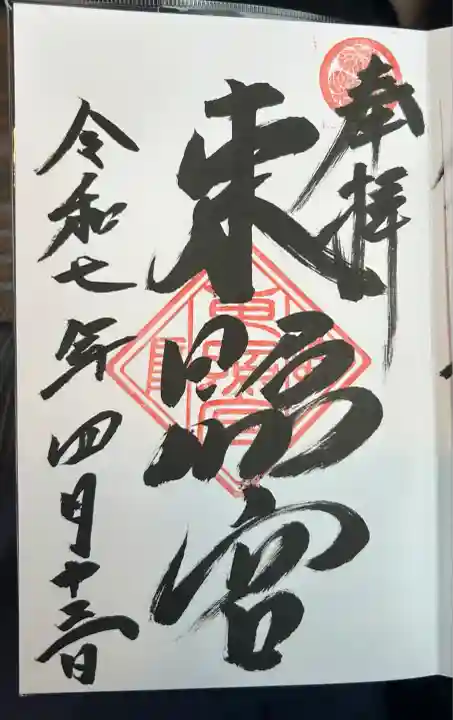 奉拝
東照宮
令和七年四月十三日